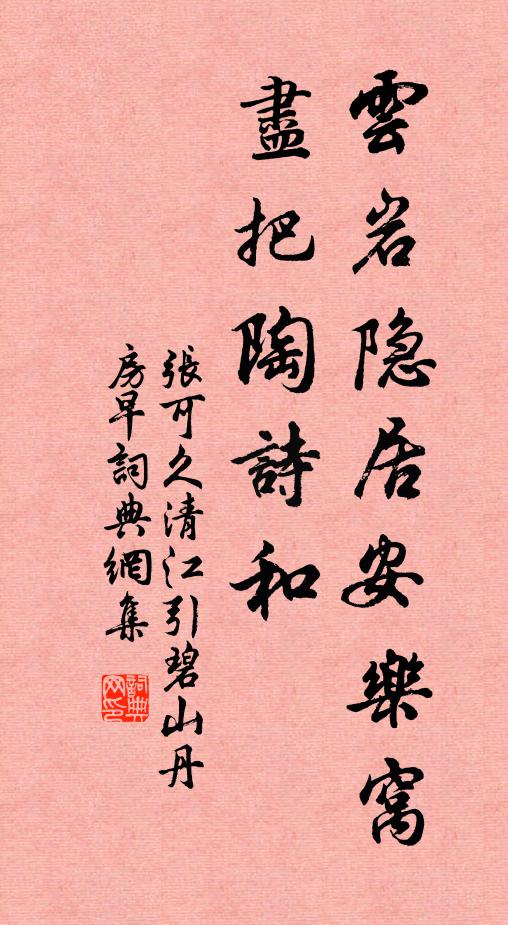 雲岩隐居安樂窩
盡把陶詩和
張可久清江引碧山丹
房早詞典網集
詞典
网